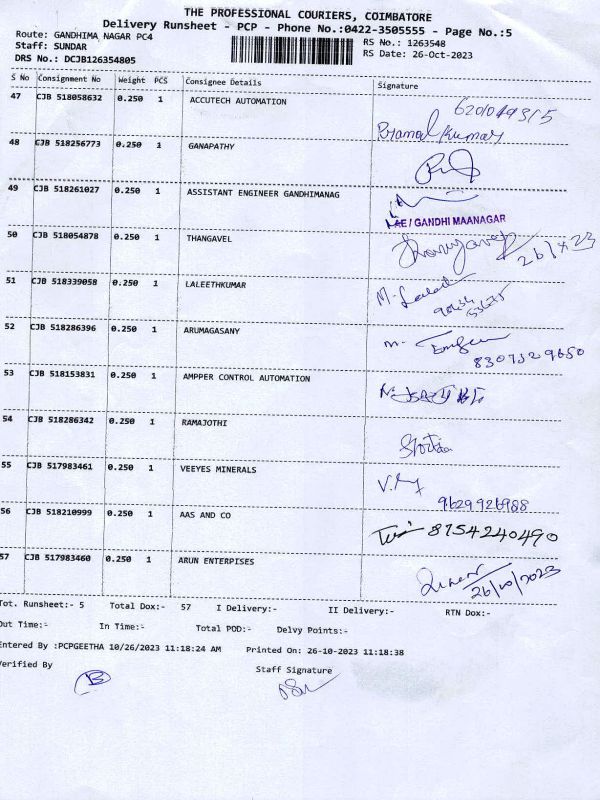 THE PROFESSIONAL COURIERS, COIMBATORE
Delivery Runsheet - PCP - Phone No.:0422-3505555 - Page No.:5
Route: GANDHIMA NAGAR PC4
RS No.: 1263548
Staff: SUNDAR
RS Date: 26-Oct-2023
DRS No.: DCJB126354805
S No Consignment No Weight PCS Consignee Details Signature
47 CJB 518058632 0.250 1 ACCUTECH AUTOMATION
Kumar
48 CJB 518256773 0.250 1 GANAPATHY
49 CJB 518261027 0.250 1 ASSISTANT ENGINEER GANDHIMANAG
AE / GANDHI MAANAGAR
50 CJB 518054878 0.250 1 THANGAVEL
26/x23
51 CJB 518339058 0.250 1 LALEETHKUMAR
M.
52 CJB 518286396 0.250 1 ARUMAGASANY
m.
53 CJB 518153831 0.250 1 AMPPER CONTROL AUTOMATION
54 CJB 518286342 0.250 1 RAMAJOTHI
55 CJB 517983461 0.250 1 VEEYES MINERALS
9629926988
56 CJB 518210999 0.250 1 AAS AND CO
8754240490
57 CJB 517983460 0.250 1 ARUN ENTERPISES
26/10/2023
Tot. Runsheet:- 5 Total Dox:- 57 I Delivery:- II Delivery:- RTN Dox:-
Out Time:- In Time:- Total POD:- Delvy Points:-
Entered By :PCPGEETHA 10/26/2023 11:18:24 AM Printed On: 26-10-2023 11:18:38
Verified By
Staff Signature
B